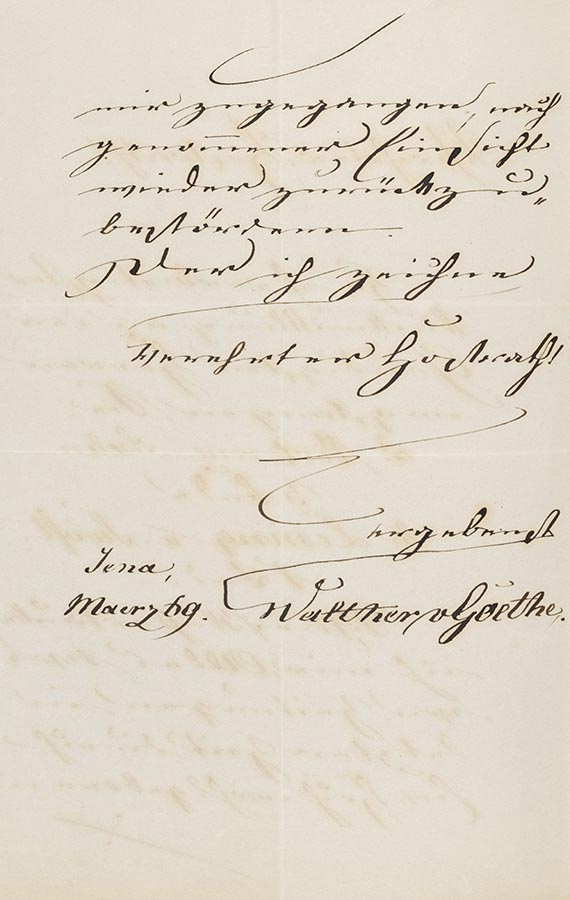 mir zugegangen, nach
genommener Einsicht
wieder zurückzu-
befördern.
Der ich zeichne
verehrter Hofrath!
ergebenst
Jena,
Maerz 69. Walther v Goethe.